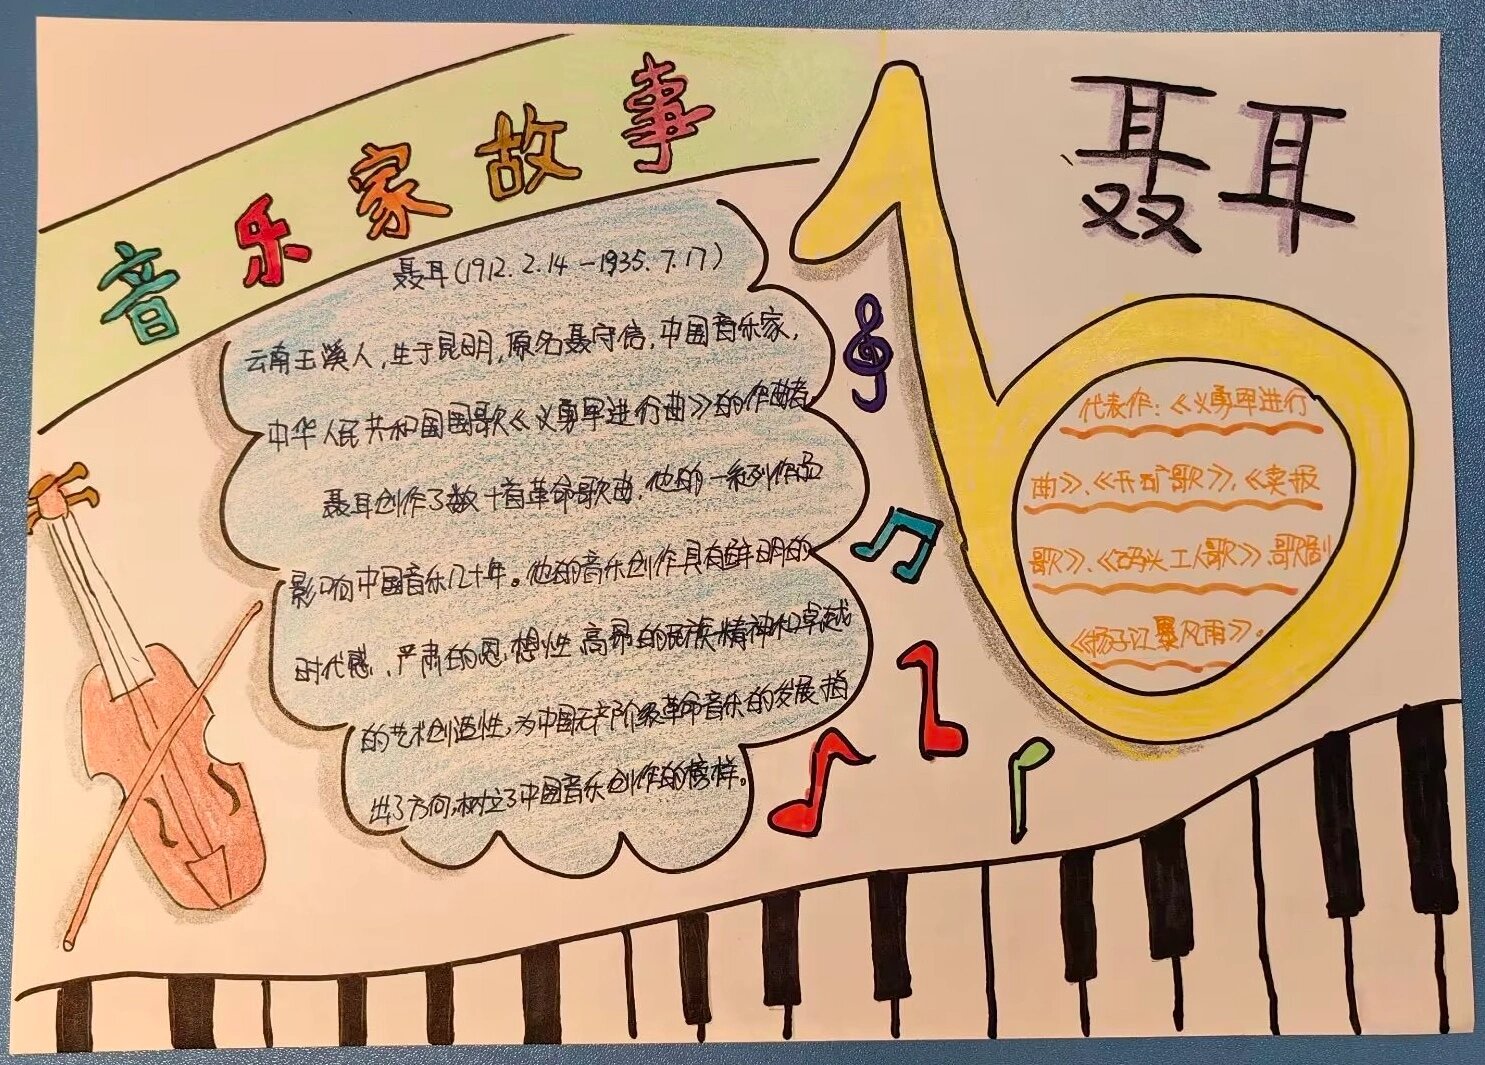 音乐家故事
聂耳
聂耳(1912.2.14-1935.7.17)
云南玉溪人,生于昆明,原名聂守信,中国音乐家,
中华人民共和国国歌《义勇军进行曲》的作曲者
聂耳创作了数十首革命歌曲,他的一系列作品
影响中国音乐几十年。他的音乐创作具有鲜明的
时代感、严肃的思想性、高昂的民族精神和卓越
的艺术创造性,为中国无产阶级革命音乐的发展指
出了方向,树立了中国音乐创作的榜样。
代表作:《义勇军进行
曲》、《开矿歌》,《卖报
歌》、《码头工人歌》、歌剧
《扬子江暴风雨》.